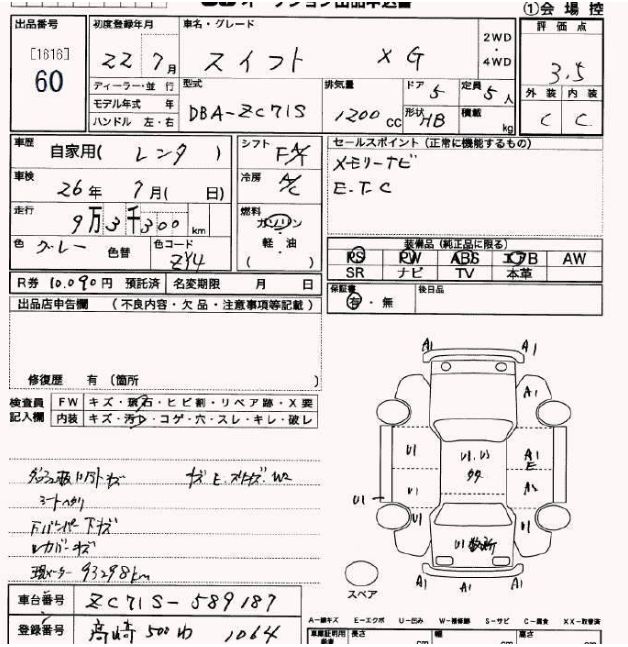 オークション出品申込書
①会場控
出品番号 初度登録年月 車名・グレード 評価点
[1616] 60 22 7月 スイフト XG 2WD・4WD 3.5
ディーラー・並行 型式 排気量 ドア 定員 外装 内装
モデル年式 年 DBA-ZC71S 1200cc 5 5人 C C
ハンドル 左・右 形状 HB 積載 kg
車歴 自家用(レンタ) シフト FAT セールスポイント(正常に機能するもの)
車検 26年7月(日) 冷房 A/C メモリーナビ
E.T.C
走行 9万3千300km 燃料 ガソリン
軽・油
( )
色 グレー 色替 色コード ZY4
装備品(純正品に限る)
PS PW ABS エアB AW
SR ナビ TV 本革
R券 10.090円 預託済 名変期限 月 日
保証書 有・無 後日品
出品店申告欄 (不良内容・欠品・注意事項等記載)
修復歴 有 〔箇所 〕
検査員記入欄 FW キズ・飛石・ヒビ割・リペア跡・X要
内装 キズ・汚れ・コゲ・穴・スレ・キレ・破レ
シートヘタリ
下バンパー下キズ
現メーター 93298km
A1 A1
A1
U1 U1.U2 A1
E
U1 U1 A2
U1 U1
U1数ヶ所
A1 A1 A1
スペア
車台番号 ZC71S-589187
登録番号 高崎 500 わ 1064
A-線キズ E-エクボ U-凹み W-補修跡 S-サビ C-腐食 XX-取替済
車庫証明用 長さ cm 幅 cm 高さ cm